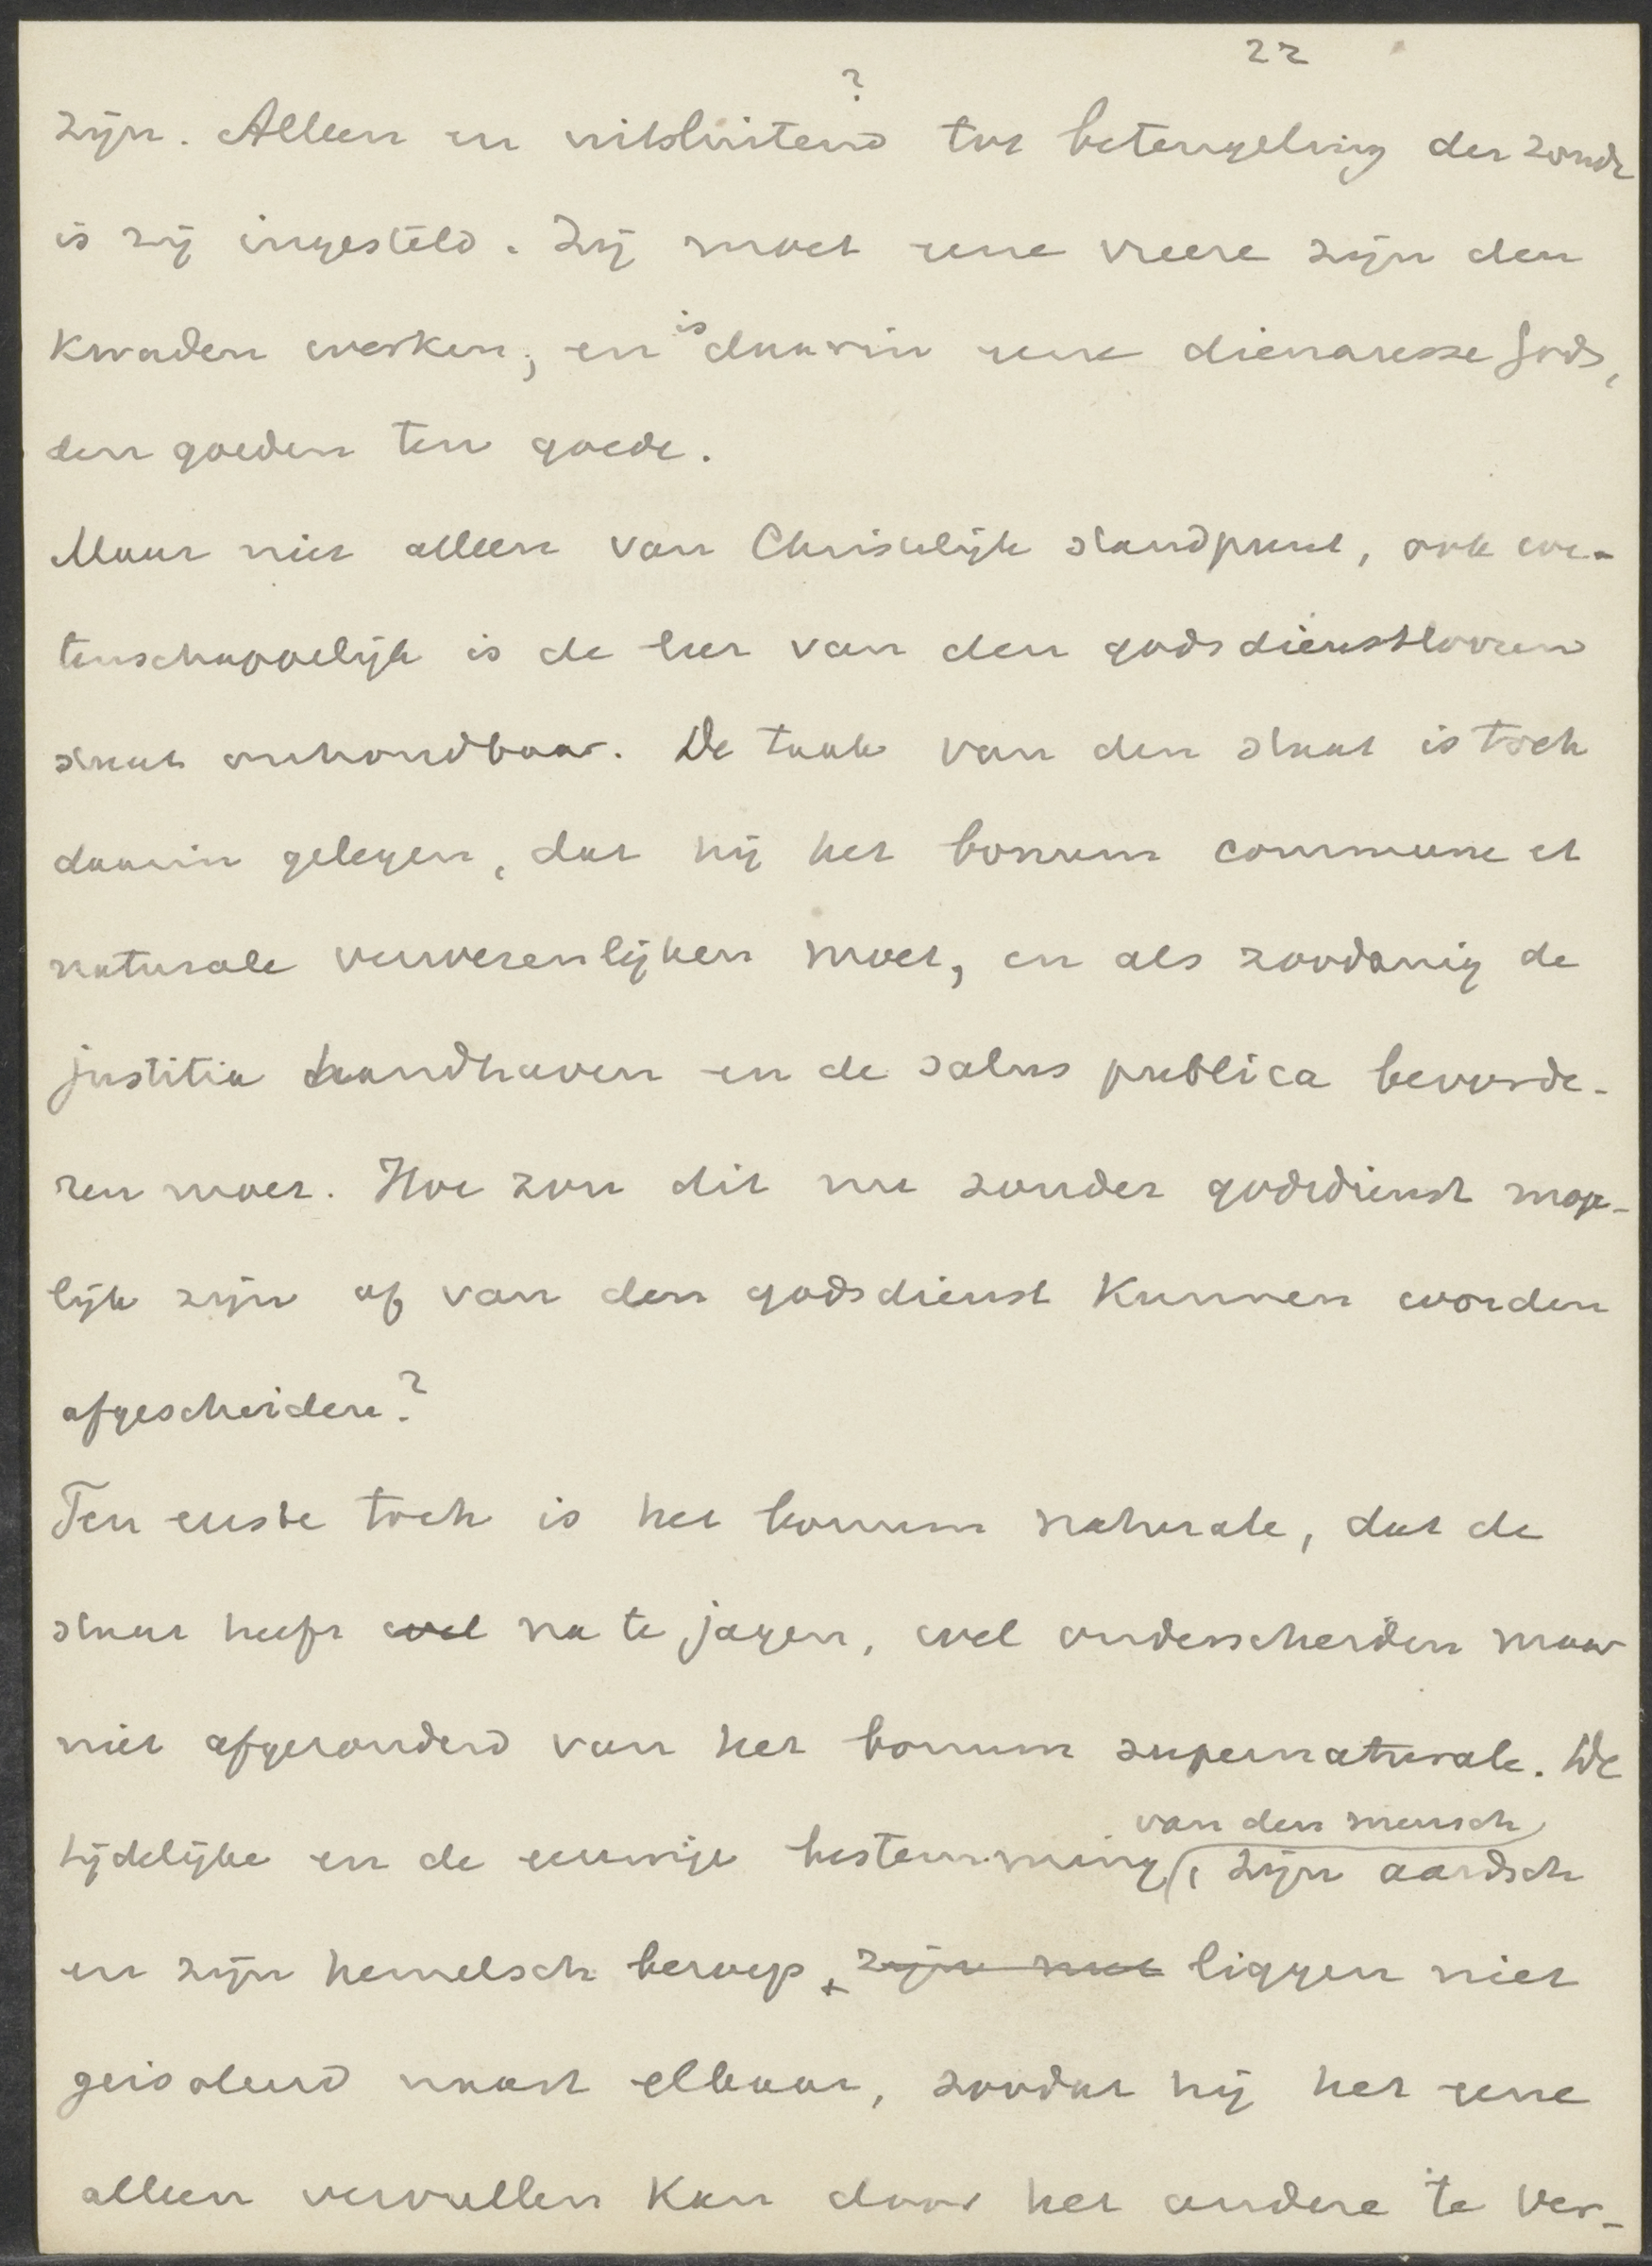 22
?
zijn. Alleen en uitsluitend tot beteugeling der zonde
is zij ingesteld. Zij moet eene vreeze zijn den
kwaden werken; en is daarin eene dienaresse Gods,
den goeden ten goede.
Maar niet alleen van Christelijk standpunt, ook we-
tenschappelijk is de leer van den godsdienstloozen
staat onhoudbaar. De taak van den staat is toch
daarin gelegen, dat hij het bonum commune et
naturale verwezenlijken moet, en als zoodanig de
justitia handhaven en de salus publica bevorde-
ren moet. Hoe zou dit nu zonder godsdienst moge-
lijk zijn of van den godsdienst kunnen worden
afgescheiden?
Ten eerste toch is het bonum naturale, dat de
staat heeft wel na te jagen, wel onderscheiden maar
niet afgezonderd van het bonum supernaturale. De
tijdelijke en de eeuwige bestemming van den mensch, zijn aardsch
en zijn hemelsch beroep, zijn niet liggen niet
geisoleerd naast elkaar, zoodat hij het eene
alleen vervullen kan door het andere te ver-